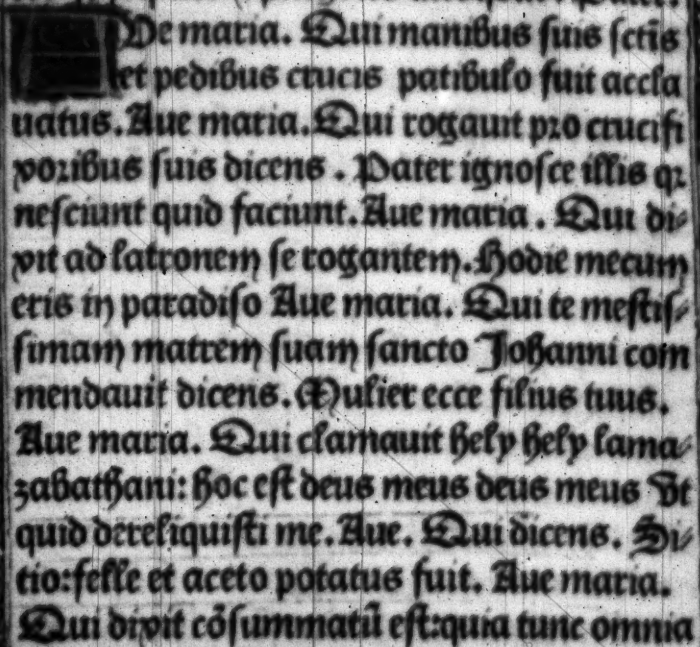 AUe maria. Qui manibus suis sctis
et pedibus crucis patibulo fuit accla
uatus. Aue maria. Qui rogauit pro crucifi
xoribus suis dicens. Pater ignosce illis qꝛ
nesciunt quid faciunt. Aue maria. Qui di⸗
xit ad latronem se rogantem. Hodie mecum
eris in paradiso Aue maria. Qui te mestis⸗
simam matrem suam sancto Johanni com
mendauit dicens. Mulier ecce filius tuus.
Aue maria. Qui clamauit hely hely lama⸗
zabathani: hoc est deus meus deus meus Vt
quid dereliquisti me. Aue. Qui dicens. Si⸗
tio: felle et aceto potatus fuit. Aue maria.
Qui dixit cōsummatū est: quia tunc omnia